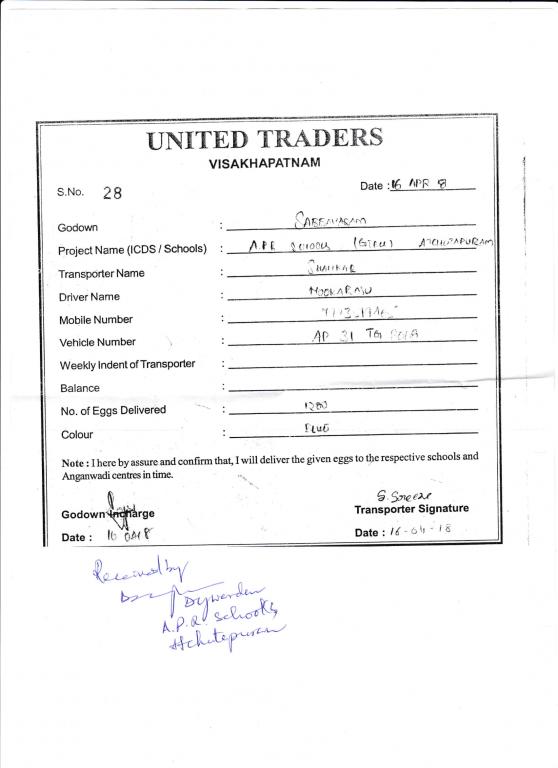 UNITED TRADERS
VISAKHAPATNAM
S.No. 28
Date : 16 APR 8
Godown : SABBAVARAM
Project Name (ICDS / Schools) : A.P.R SCHOOLS (GIRLS) ATCHUTAPURAM
Transporter Name : SHANKAR
Driver Name : NOOKARAJU
Mobile Number :
Vehicle Number : AP 31 TG
Weekly Indent of Transporter :
Balance :
No. of Eggs Delivered : 1200
Colour : BLUE
Note : I here by assure and confirm that, I will deliver the given eggs to the respective schools and
Anganwadi centres in time.
Godown Incharge
Date : 16
S. Sreenu
Transporter Signature
Date : 16-04-18
Received by
Dy warden
A.P.R. Schools
Atchutapuram